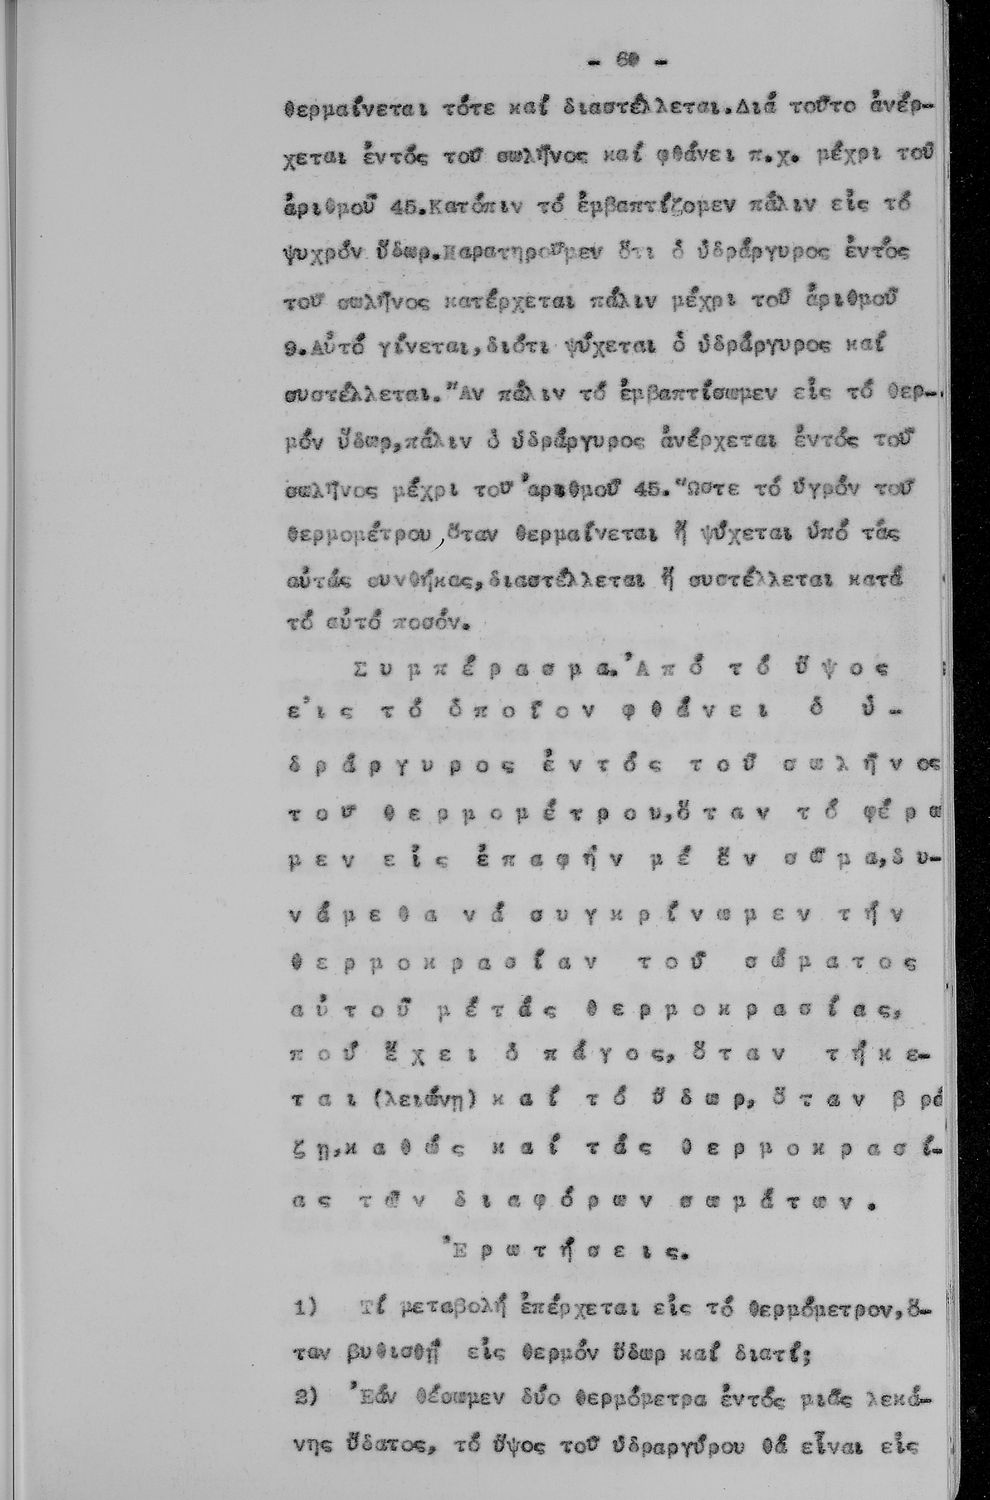 - 60 -
θερμαίνεται τότε καί διαστέλλεται.Διά τοῦτο ἀνέρ-
χεται ἐντός τοῦ σωλῆνος καί φθάνει π.χ. μέχρι τοῦ
ἀριθμοῦ 45.Κατόπιν τό ἐμβαπτίζομεν πάλιν εἰς τό
ψυχρόν ὕδωρ.Παρατηροῦμεν ὅτι ὁ ὑδράργυρος ἐντός
τοῦ σωλῆνος κατέρχεται πάλιν μέχρι τοῦ ἀριθμοῦ
9.Αὐτό γίνεται,διότι ψύχεται ὁ ὑδράργυρος καί
συστέλλεται.Ἄν πάλιν τό ἐμβαπτίσωμεν εἰς τό θερ-
μόν ὕδωρ,πάλιν ὁ ὑδράργυρος ἀνέρχεται ἐντός τοῦ
σωλῆνος μέχρι τοῦ ἀριθμοῦ 45.Ὥστε τό ὑγρόν τοῦ
θερμομέτρου,ὅταν θερμαίνεται ἤ ψύχεται ὑπό τάς
αὐτάς συνθήκας,διαστέλλεται ἤ συστέλλεται κατά
τό αὐτό ποσόν.
Συμπέρασμα.Ἀπό τό ὕψος
εἰς τό ὁποῖον φθάνει ὁ ὑ-
δράργυρος ἐντός τοῦ σωλῆνος
τοῦ θερμομέτρου,ὅταν τό φέρω
μεν εἰς ἐπαφήν μέ ἕν σῶμα,δυ-
νάμεθα νά συγκρίνωμεν τήν
θερμοκρασίαν τοῦ σώματος
αὐτοῦ μέ τάς θερμοκρασίας,
πού ἔχει ὁ πάγος,ὅταν τήκε-
ται(λειώνῃ) καί τό ὕδωρ,ὅταν βρά
ζῃ,καθώς καί τάς θερμοκρασί-
ας τῶν διαφόρων σωμάτων.
Ἐρωτήσεις.
1) Τί μεταβολή ἐπέρχεται εἰς τό θερμόμετρον,ὅ-
ταν βυθισθῇ εἰς θερμόν ὕδωρ καί διατί;
2) Ἐάν θέσωμεν δύο θερμόμετρα ἐντός μιᾶς λεκά-
νης ὕδατος, τό ὕψος τοῦ ὑδραργύρου θά εἶναι εἰς